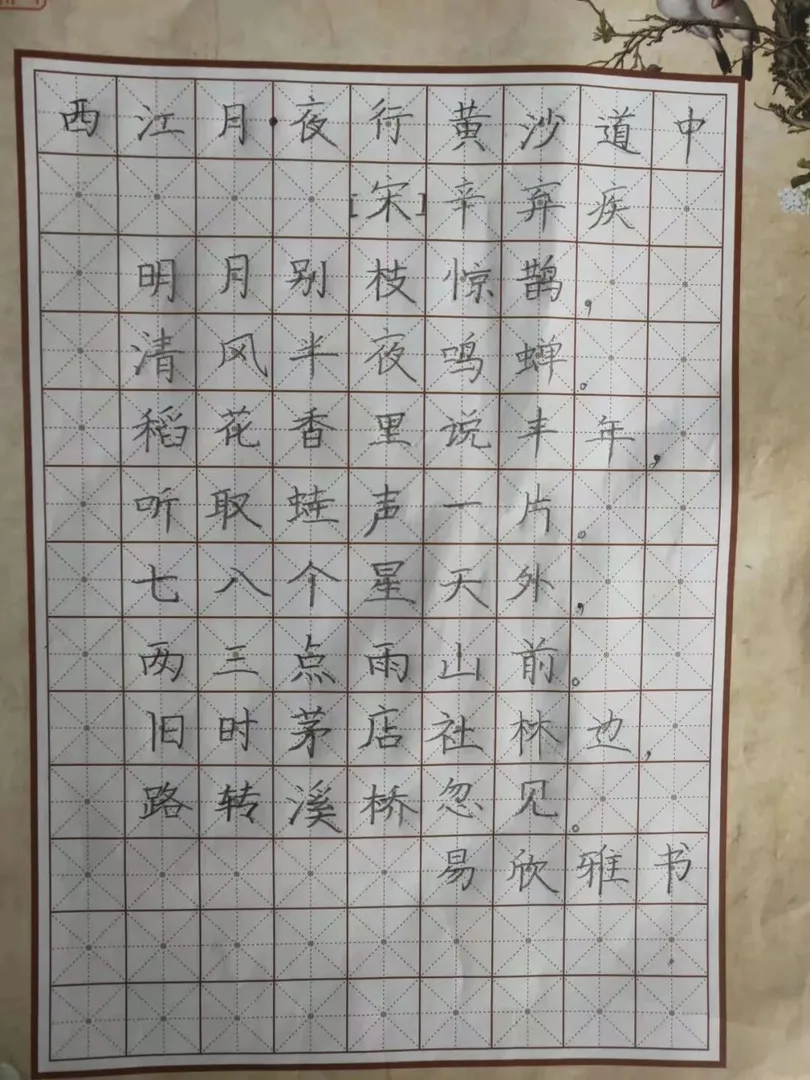 西江月·夜行黄沙道中
[宋]辛弃疾
明月别枝惊鹊，
清风半夜鸣蝉。
稻花香里说丰年，
听取蛙声一片。
七八个星天外，
两三点雨山前。
旧时茅店社林边，
路转溪桥忽见。
易欣雅书